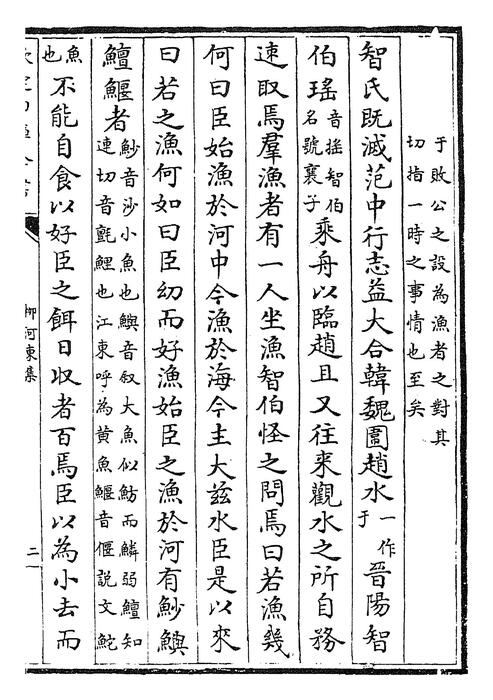 于敗公之設為漁者之對其
切指一時之事情也至矣
智氏既滅范中行志益大合韓魏圍趙水一作于晉陽智
伯瑤音揺智伯名號襄子乘舟以臨趙且又往來觀水之所自務
速取焉羣漁者有一人坐漁智伯怪之問焉曰若漁幾
何曰臣始漁於河中今漁於海今主大茲水臣是以來
曰若之漁何如曰臣幼而好漁始臣之漁於河有魦鱮
鱣鰋者魦音沙小魚也鱮音叙大魚似魴而鱗弱鱣知連切音氈鯉也江東呼為黄魚鰋音偃説文鮀
魚也不能自食以好臣之餌日収者百焉臣以為小去而
柳河東集
二